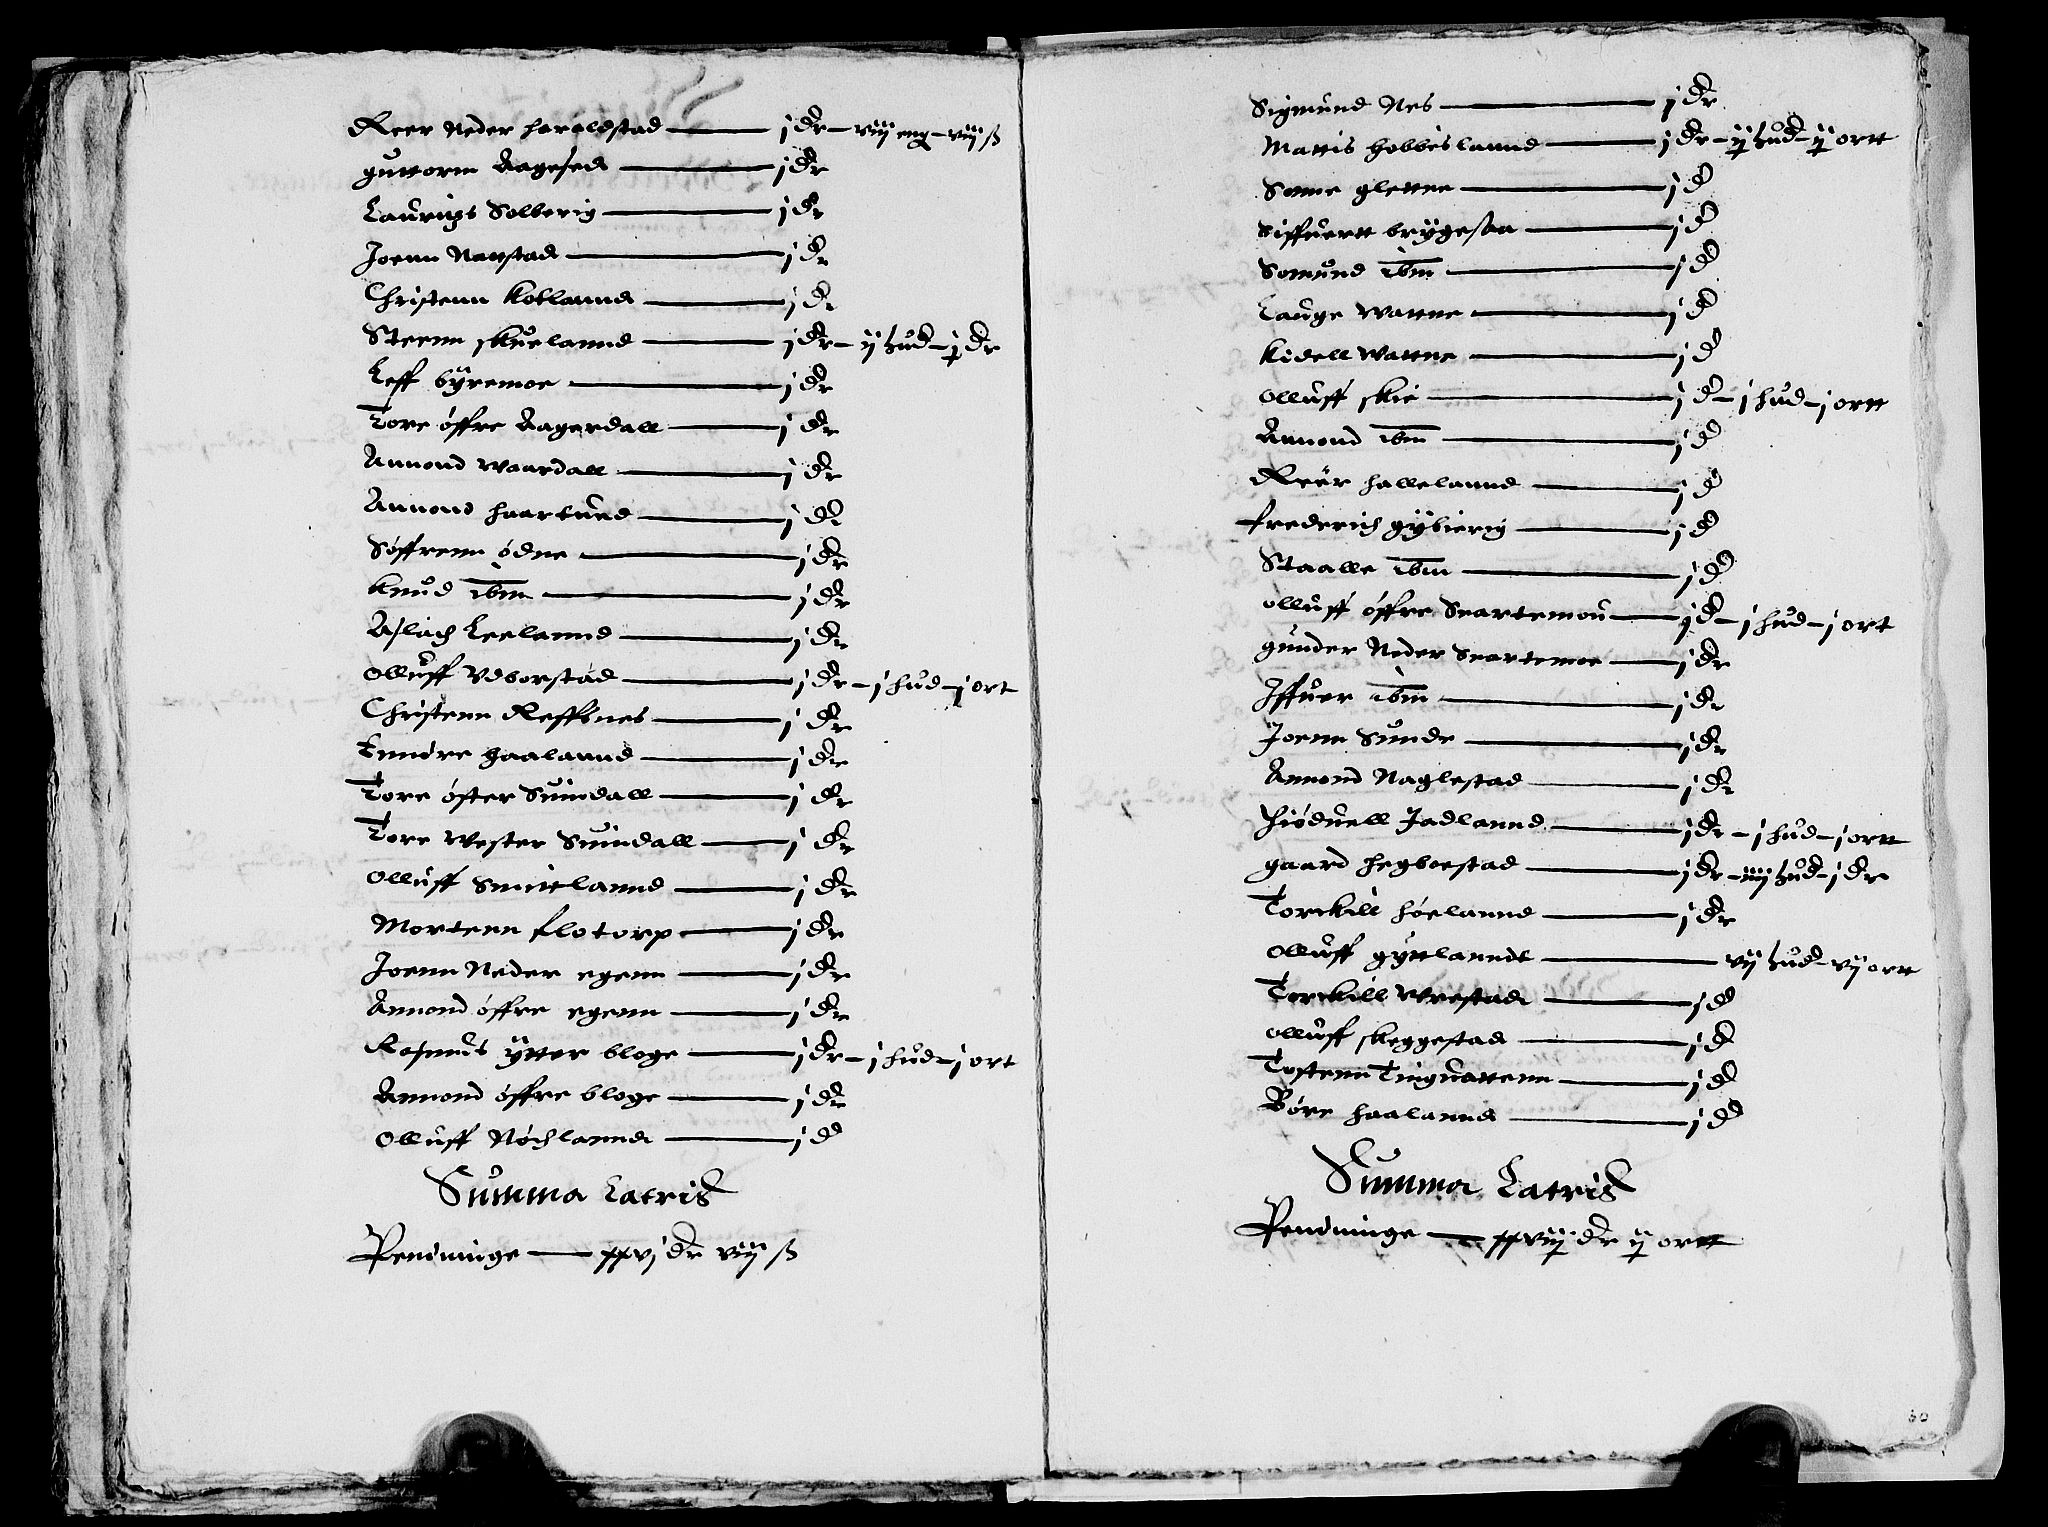 Reer Neder haraldstad — j dr – viij eng – viij ß
guttorm Aagesed — j dr
Lauritzs Solberig — j dr
Joenn Nattstad — j dr
Christenn Kollannd — j dr
Steenn skuelannd — j dr – ij hud – j dr
Leff byremoe — j dr
Tore øffre Aagerdall — j dr
Annond Waardall — j dr
Annond haartued — j dr
Søffrenn ødne — j dr
Knud ibm — j dr
Aslach Leelannd — j dr
Olluff Vdborstad — j dr – j hud – j ort
Christenn Reffsnes — j dr
Enndre haalannd — j dr
Tore øster Suindall — j dr
Tore Wester Suindall — j dr
Olluff Smittlannd — j dr
Mortenn flotorp — j dr
Joenn Neder egenn — j dr
Annond øffre egenn — j dr
Rasmus ytter bloge — j dr – j hud – j ort
Annond øffre bloge — j dr
Olluff Nøchlannd — j d
Summa Latris
Penninge — xxvj dr viij ß
Sigmund Nes — j dr
Mattis hobbeslannd — j dr – ij hud – ij ortt
Sonne glettne — j d
Siffuert brygesaa — j d
Somund ibm — j d
Lauge Wattne — j d
Kidell Wattne — j d
Olluff skie — j d – j hud – j ortt
Annond ibm — j d
Reer hallelannd — j d
frederich gybierig — j d
Staalle ibm — j d
Olluff øffre Snartemou — j d – j hud – j ort
gunder Neder Snartemoe — j dr
Iffuer ibm — j dr
Joenn Sunde — j dr
Annond Naglestad — j dr
Hiøduell Jadlannd — j dr – j hud – j ortt
gaard hegboestad — j dr – iiij hud – j dr
Torckill høelannd — j dr
Olluff gyttlanndt — vij hud – vij ortt
Torckill Vrestad — j d
Olluff skeggestad — j d
Tostenn Tinguattenn — j d
Børe haalannd — j d
Summa Latris
Penninge — xxviij dr ij ortt
60